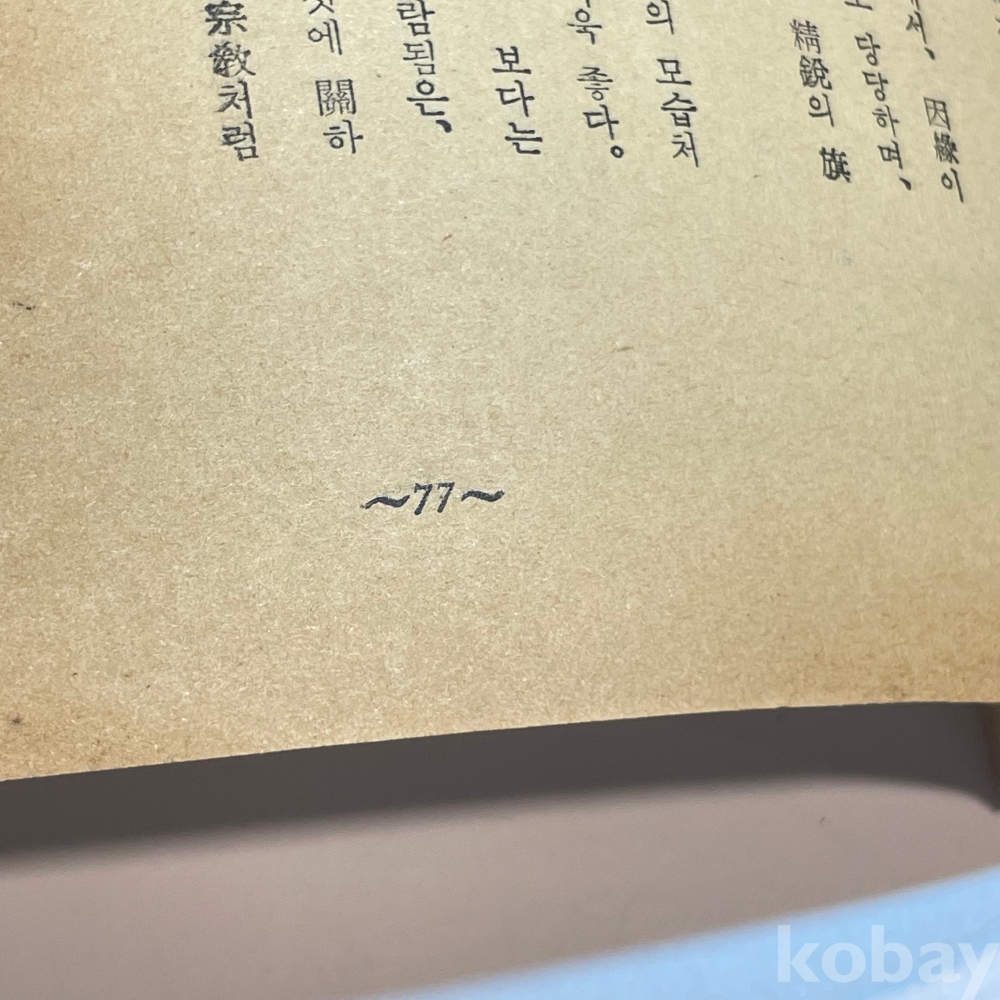 因緣이
당당하며,
精銳의 旗
의 모습처
좋다。
보다는
람됨은,
에 關하
宗敎처럼
~77~
kobay